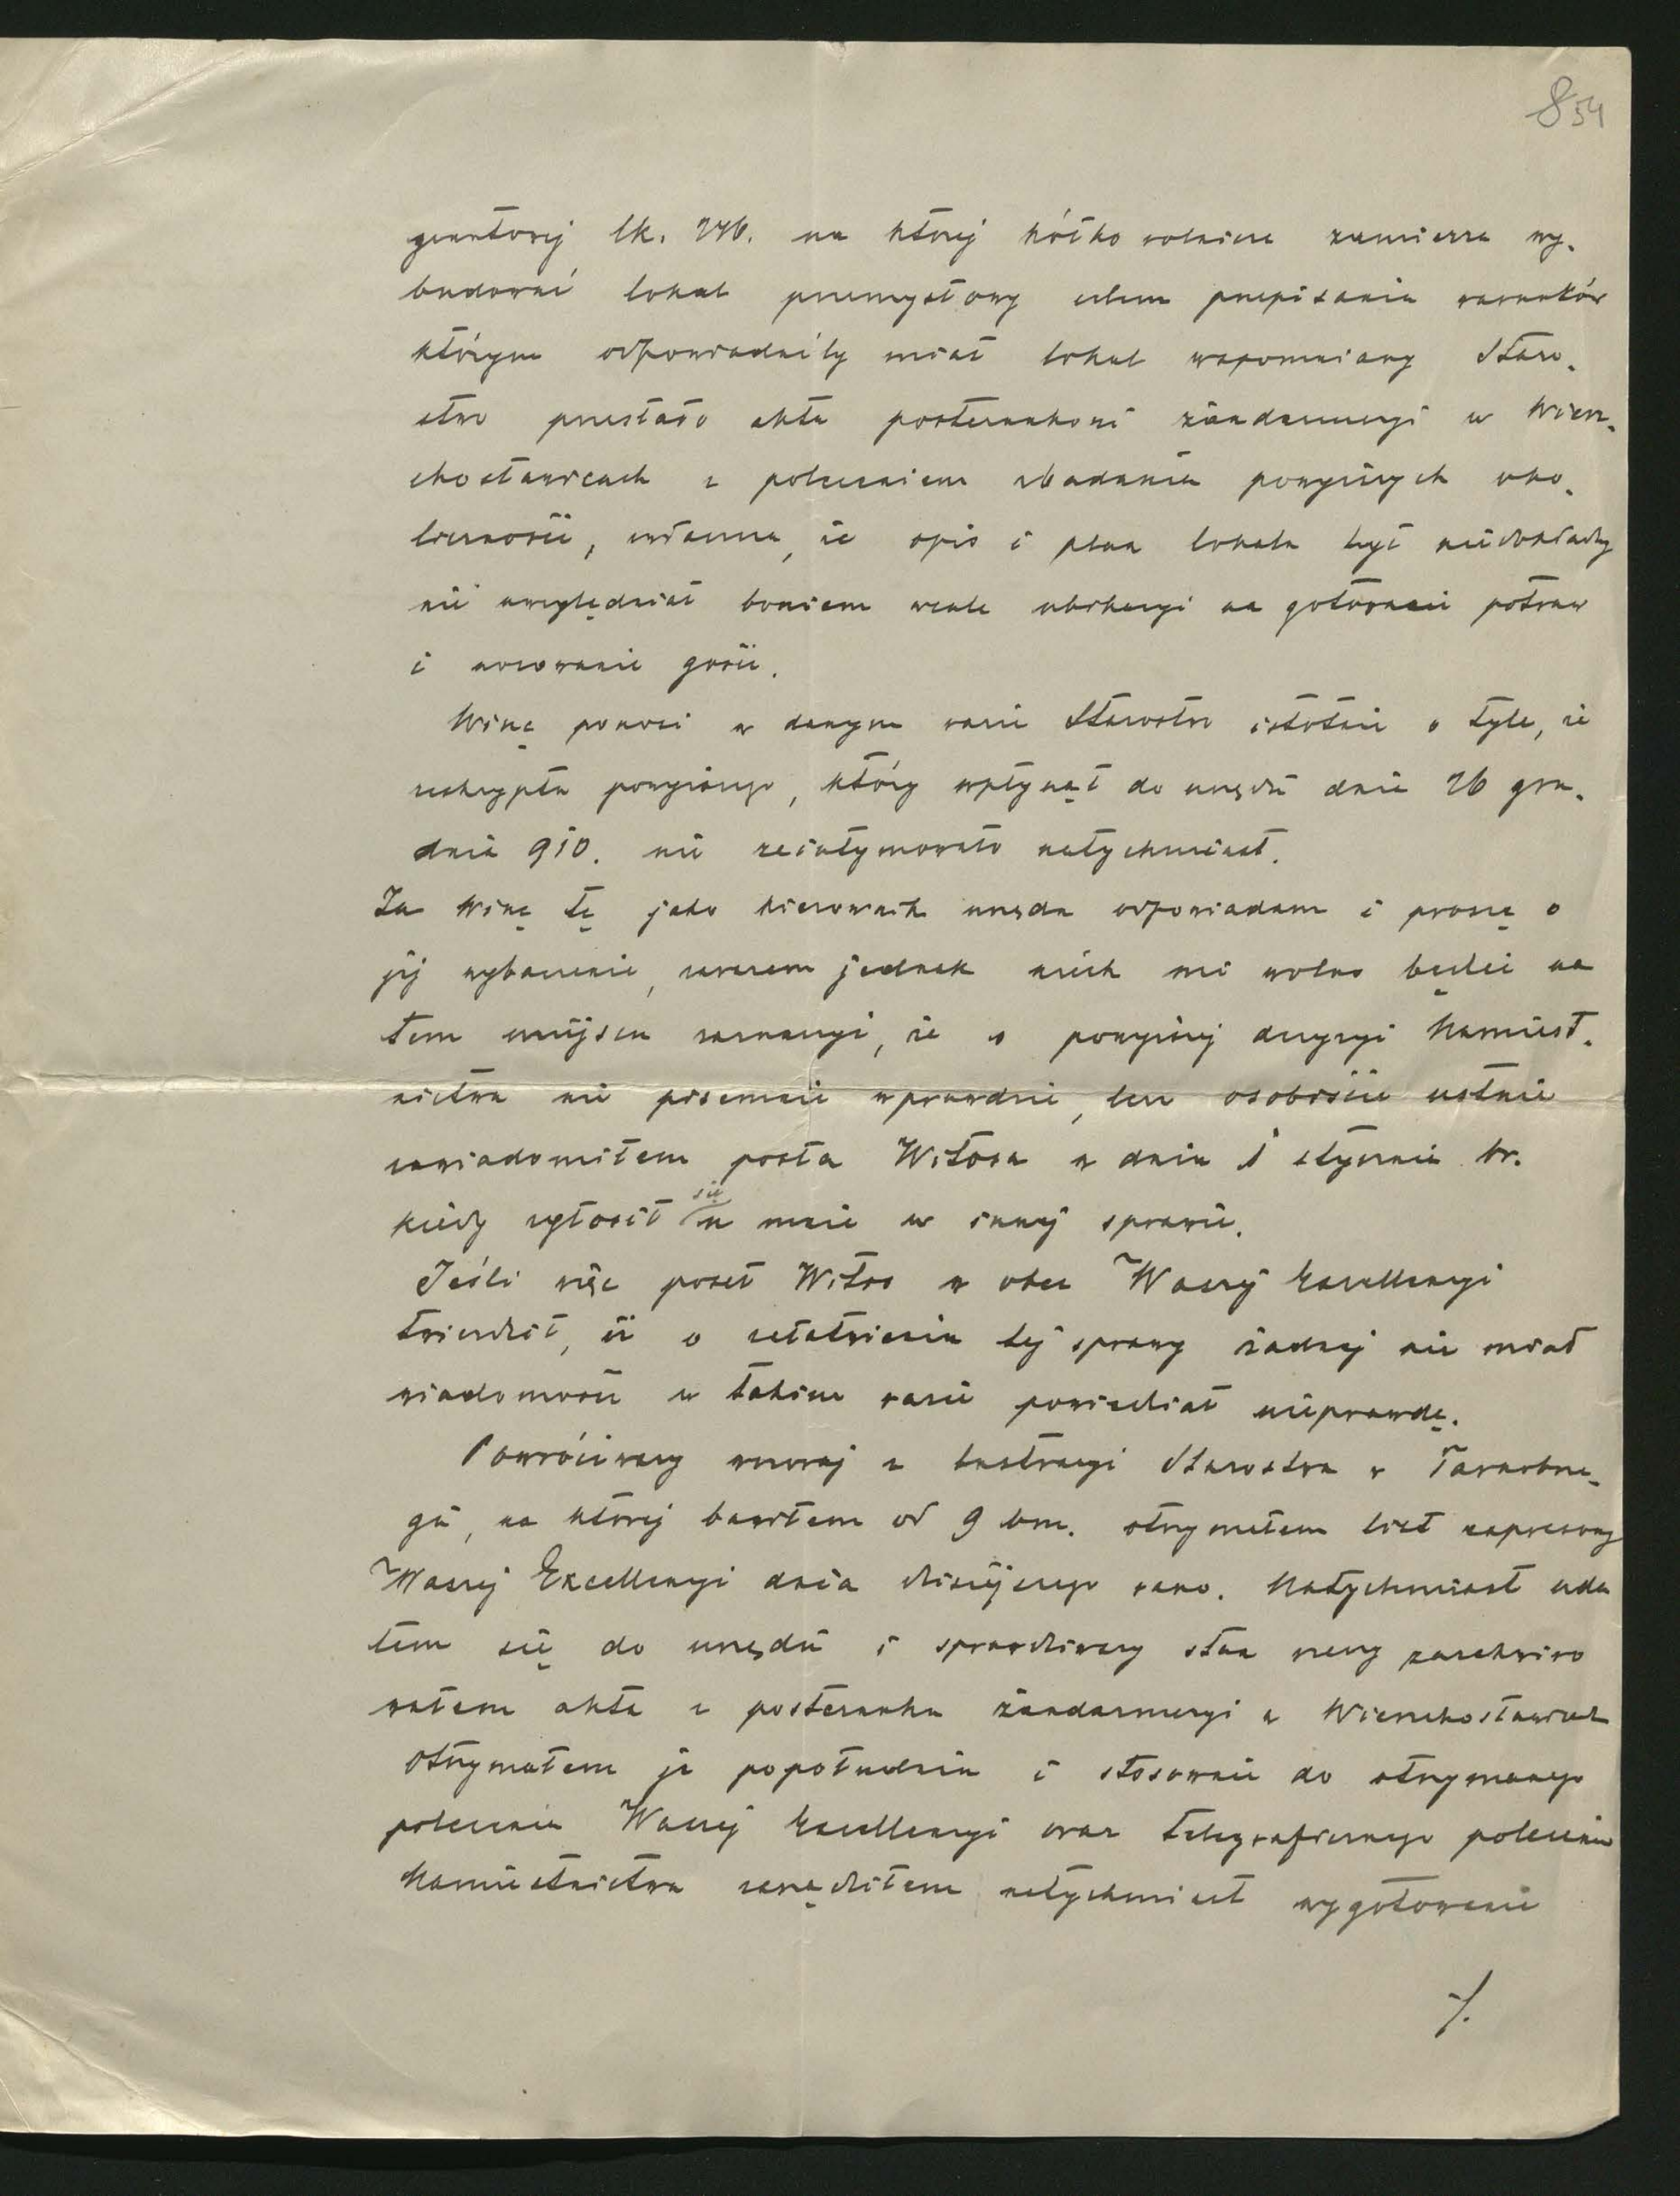 854
gruntowej lk. 246. na której kółko rolnicze zamierza wy-
budować lokal przemysłowy celem przepisania warunków
którym odpowiadaćby miał lokal wspomniany Staro-
stwo przesłało akta posterunkowi żandarmeryi w Wierz-
chosławicach z poleceniem zbadania powyższych oko-
liczności, zwłaszcza, że opis i plan lokalu był niedokładny
nie uwzględniał bowiem wcale ubikacyi na gotowanie potraw
i nocowanie gości.
Winę ponosi w danym razie Starostwo istotnie o tyle, że
reskryptu powyższego, który wpłynął do urzędu dnia 26 gru-
dnia 910. nie zeintymowało natychmiast.
Za winę tę jako kierownik urzędu odpowiadam i proszę o
jej wybaczenie, zarazem jednak niech mi wolno będzie na
tem miejscu zaznaczyć, że o powyższej decyzyi Namiest-
nictwa nie pisemnie wprawdzie, lecz osobiście ustnie
zawiadomiłem posła Witosa w dniu 1 stycznia br.
kiedy zgłosił się u mnie w innej sprawie.
Jeśli więc poseł Witos w obec Waszej Excellencyi
twierdził, iż o załatwieniu tej sprawy żadnej nie miał
wiadomości w takim razie powiedział nieprawdę.
Powróciwszy wczoraj z lustracyi Starostwa w Tarnobrze-
gu, na której bawiłem od 9 bm. otrzymałem list expresowy
Waszej Excellencyi dnia dzisiejszego rano. Natychmiast uda
łem się do urzędu i sprawdziwszy stan rzeczy zarekwiro
wałem akta z posterunku żandarmeryi w Wierzchosławicach
otrzymałem je popołudniu i stosownie do otrzymanego
polecenia Waszej Excellencyi oraz telegraficznego polecenia
Namiestnictwa zarządziłem natychmiast wygotowanie
./.